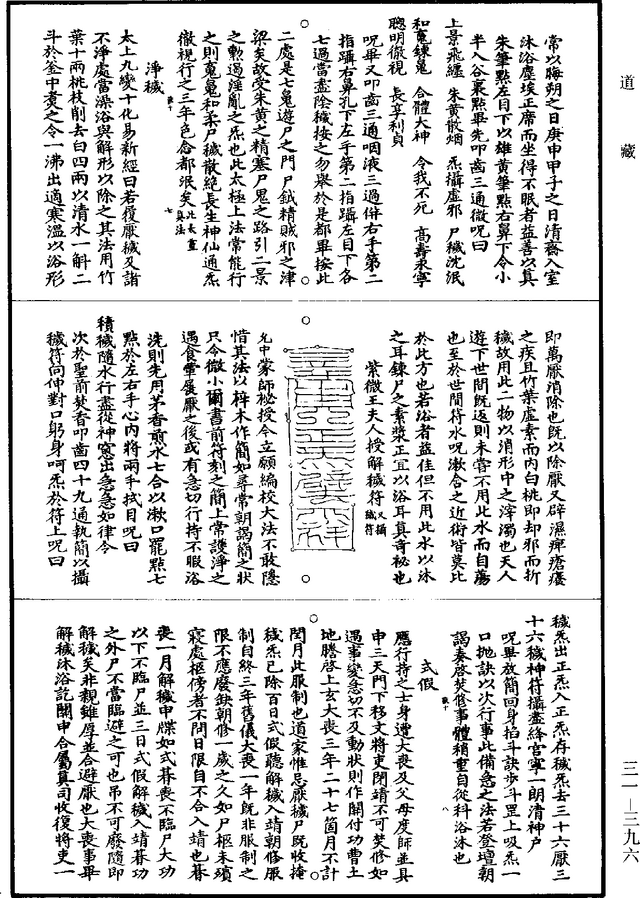 道藏
常以晦朔之日庚申甲子之日清齋入室
沐浴塵埃正席而坐得不眠者益善以真
朱筆點左目下以雄黄筆點右鼻下令小
半入谷裏點畢先叩齒三通微呪曰
上景飛纏 朱黄散烟 炁攝虚邪 尸穢沈泯
和䰟錬䰟 合體大神 令我不死 髙壽永寧
聰明徹視 長享利貞
呪畢又叩齒三通咽液三過併右手第二
指躡右鼻孔下左手第二指躡左目下各
七過當盡陰穢按之勿舉於是都畢按此
二處是七䰟遊尸之門户鉞精賊邪之津
梁矣故受朱黄之精塞尸鬼之路引二景
之勲遏淫亂之炁也此太極上法常能行
之則䰟䰟和柔尸穢散絶長生神仙通炁
徹視行之三年色念都泯矣此太上真法
淨穢
太上九變十化易新經曰若履厭穢及諸
不淨處當澡浴與解形以除之其法用竹
葉十兩桃枝削去白四兩以清水一斛二
斗於釜中煑之令一沸出適寒溫以浴形
即萬厭消除也旣以除厭又辟濕痺瘡癢
之疾且竹葉虚素而内白桃即却邪而折
穢故用此二物以消形中之滓濁也天人
遊下世間旣返則未嘗不用此水而自蕩
也至於世間符水呪漱合之近術皆莫比
於此方也若浴者益佳但不用此水以沐
之耳錬尸之素漿正宜以浴耳真奇祕也
紫微王夫人授解穢符又攝穢符
允中蒙師祕授今立願編校大法不敢隱
惜其法以梓木作簡如尋常朝謁簡之狀
只令微小爾書前符刻之簡上常護淨之
遇食葷展厭之後或有急切行持不暇浴
洗則先用茅香煎水七合以漱口罷點七
點於左右手心内將兩手拭目呪曰
積穢隨水行盡從神窓出急急如律令
次於聖前焚香叩齒四十九通執簡以攝
穢符向仲對口躬身呵炁於符上呪曰
穢炁出正炁入正炁存穢炁去三十六厭三
十六穢神符攝盡絳宫寧一朗清神户
呪畢放簡回身掐斗訣步斗罡上吸炁一
口抛訣以次行事此備急之法若登壇朝
謁奏啓焚修事體稍重自從科浴沐也
式假
應行持之士身遭大䘮及父母度師並具
申三天門下移文將吏閉靖不可焚修如
遇事變急切不及動狀則作關付功曹土
地謄啓上玄大䘮三年二十七箇月不計
閏月此服制也道家惟忌厭穢尸旣收掩
穢炁已除百日式假聽解穢入靖朝修服
制自終三年舊儀大䘮一年旣非服制之
限不應廢缺朝修一歲之久如尸柩未殯
寢處柩傍者不問日限自不合入靖也暮
䘮一月解穢申牒如式暮䘮不臨尸大功
以下不臨尸並三日式假解穢入靖暮功
之外尸不當臨避之可也弔不可廢隨即
解穢矣非親雖厚並合避厭也大䘮事畢
解穢沐浴訖關申合屬真司收復將吏一
三一—三九六